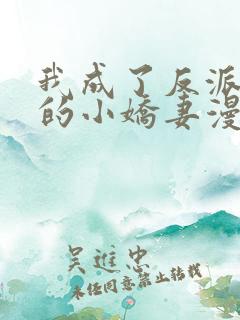 我成了反派
的小嬌妻漫
吴進忠
未任同意禁止转载